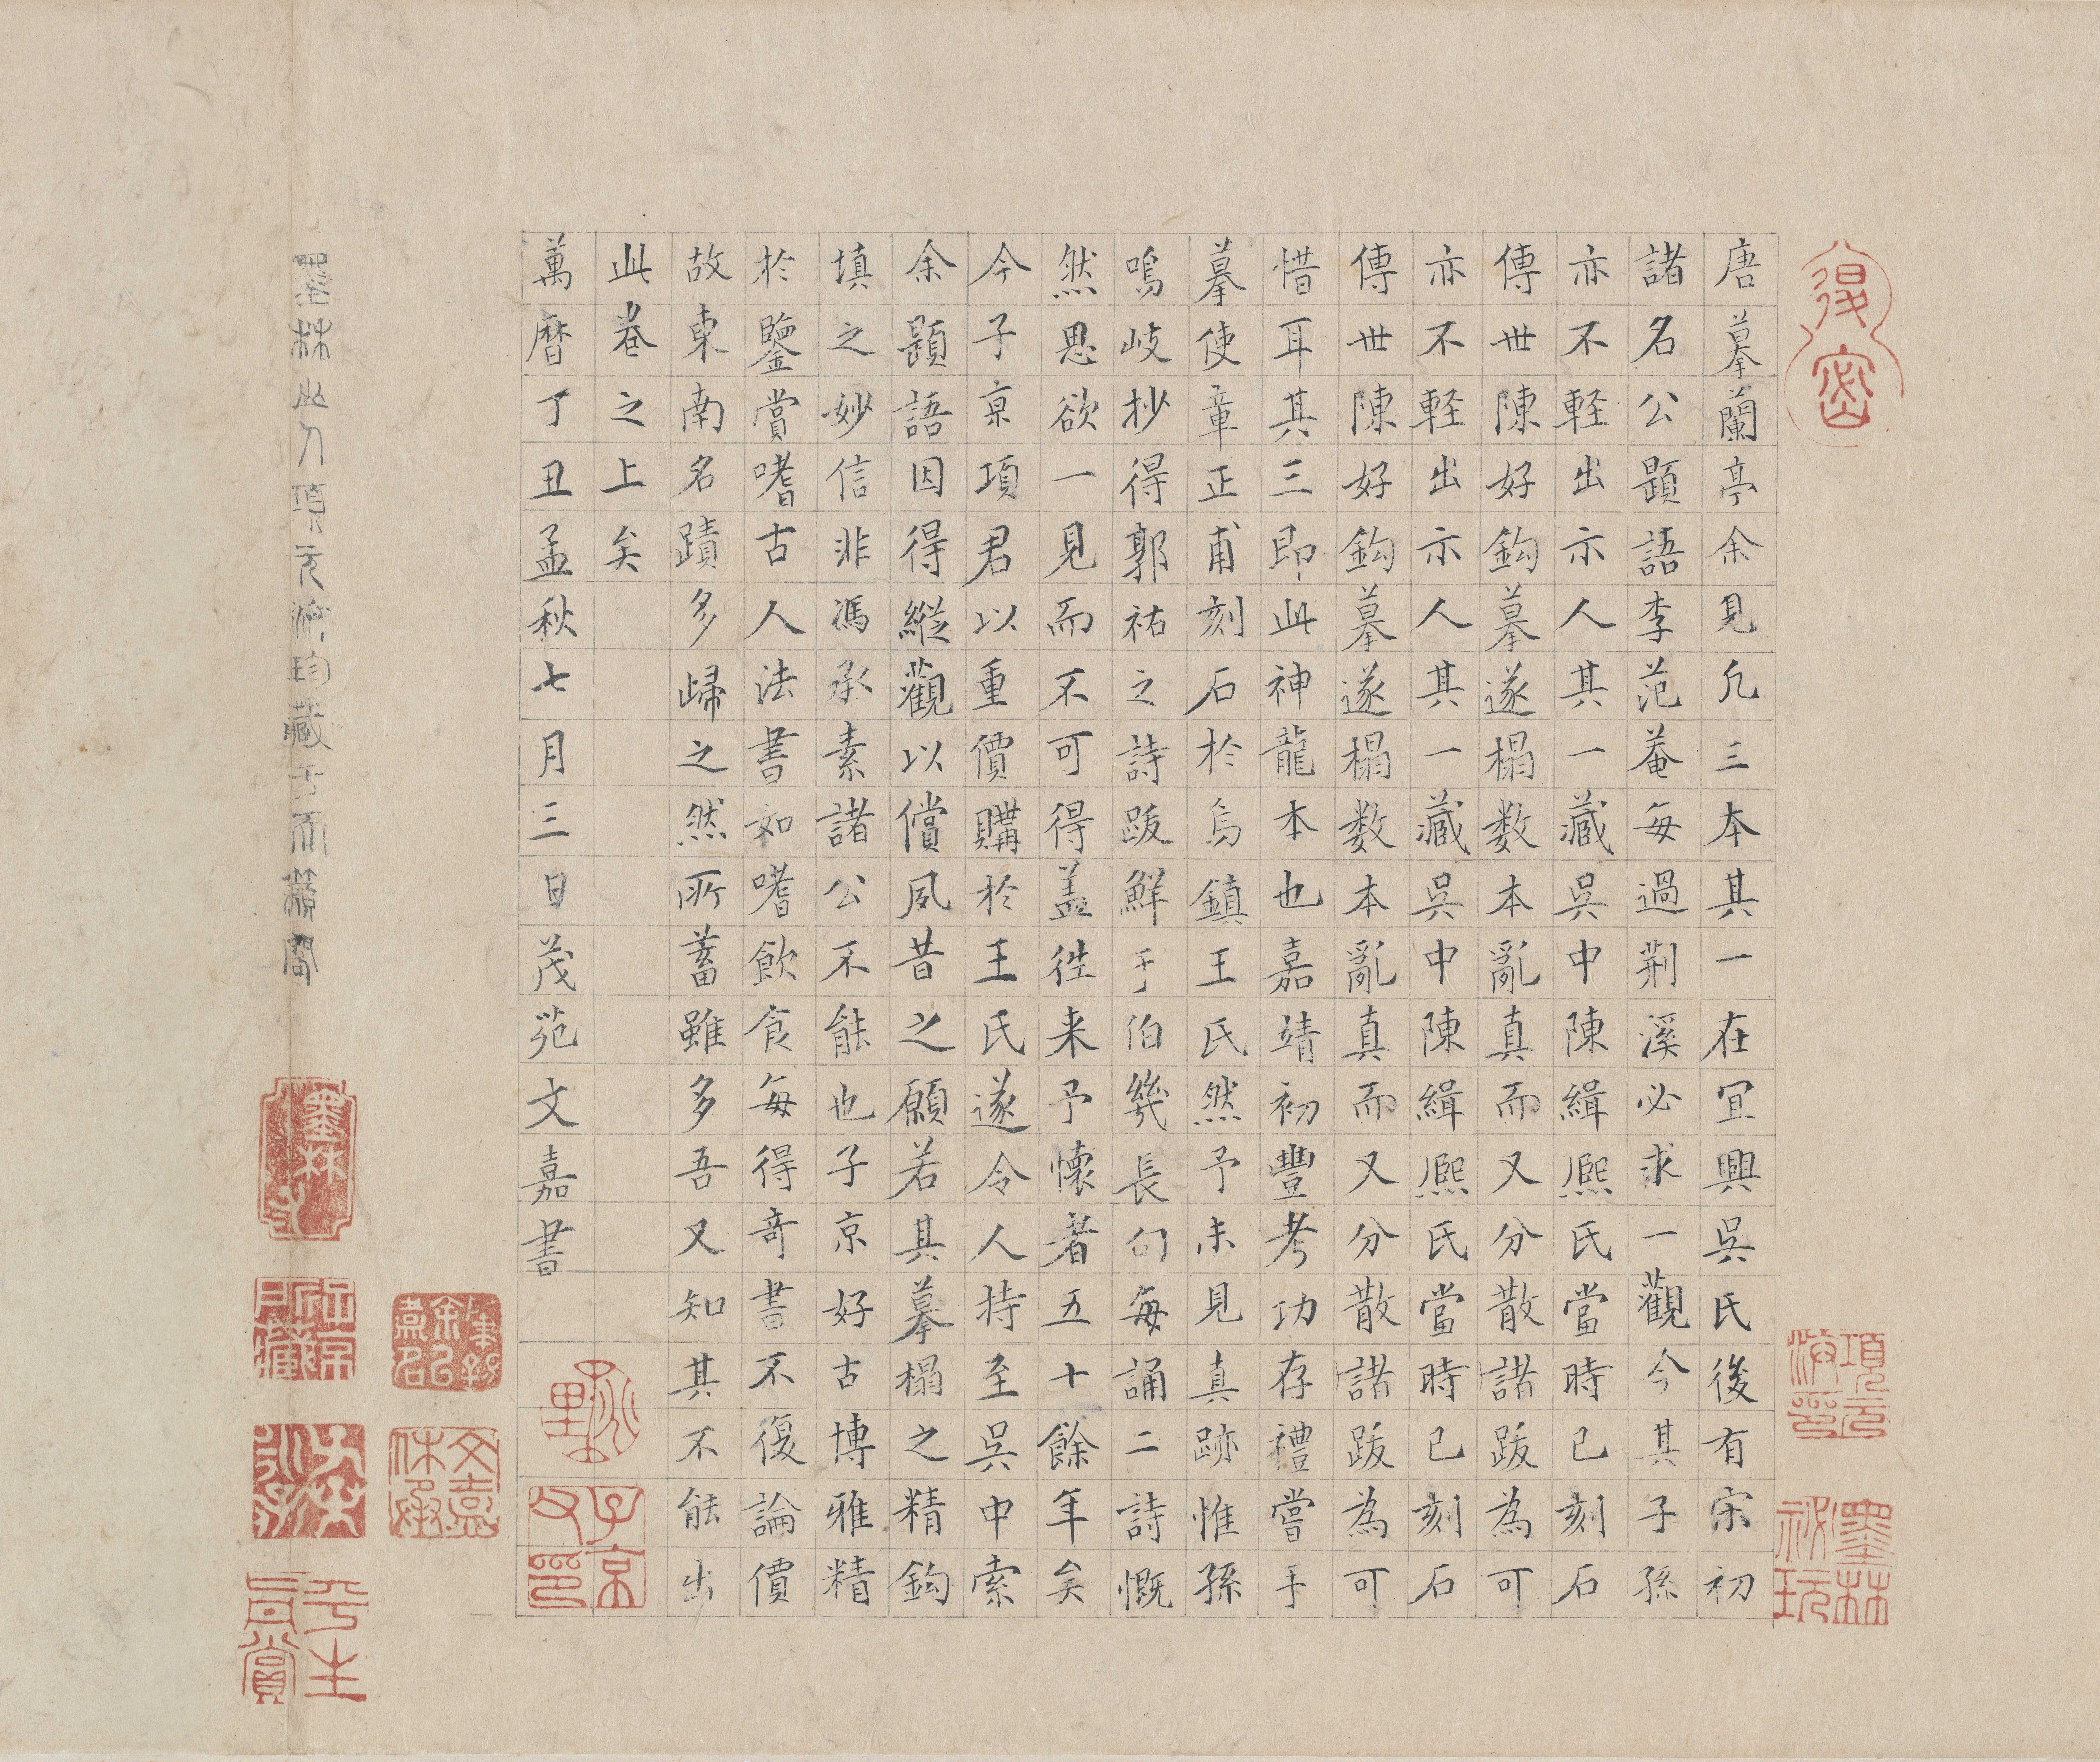 唐摹蘭亭余見凡三本其一在宜興吳氏後有宋初
諸名公題語李范菴每過荆溪必求一觀今其子孫
亦不軽出示人其一藏吳中陳緝熈氏當時已刻石
傳世陳好鈎摹遂榻数本亂真而又分散諸跋為可
亦不軽出示人其一藏吳中陳緝熈氏當時已刻石
傳世陳好鈎摹遂榻数本亂真而又分散諸跋為可
惜耳其三即此神龍本也嘉靖初豐考功存禮嘗手
摹使章正甫刻石於烏鎮王氏然予未見真跡惟孫
鳴岐抄得郭祐之詩跋鮮于伯幾長句每誦二詩慨
然思欲一見而不可得盖徃来予懷者五十餘年矣
今子京項君以重價購於王氏遂令人持至吳中索
余題語因得縱觀以償夙昔之願若其摹榻之精鈎
填之妙信非馮承素諸公不能也子京好古博雅精
於鑒賞嗜古人法書如嗜飲食每得奇書不復論價
故東南名蹟多歸之然所蓄雖多吾又知其不能出
此卷之上矣
萬曆丁丑孟秋七月三日茂苑文嘉書
墨林山人項元汴珍藏于天籟閣
項元汴印
墨林秘玩
子京父印
文嘉休承
平生真賞